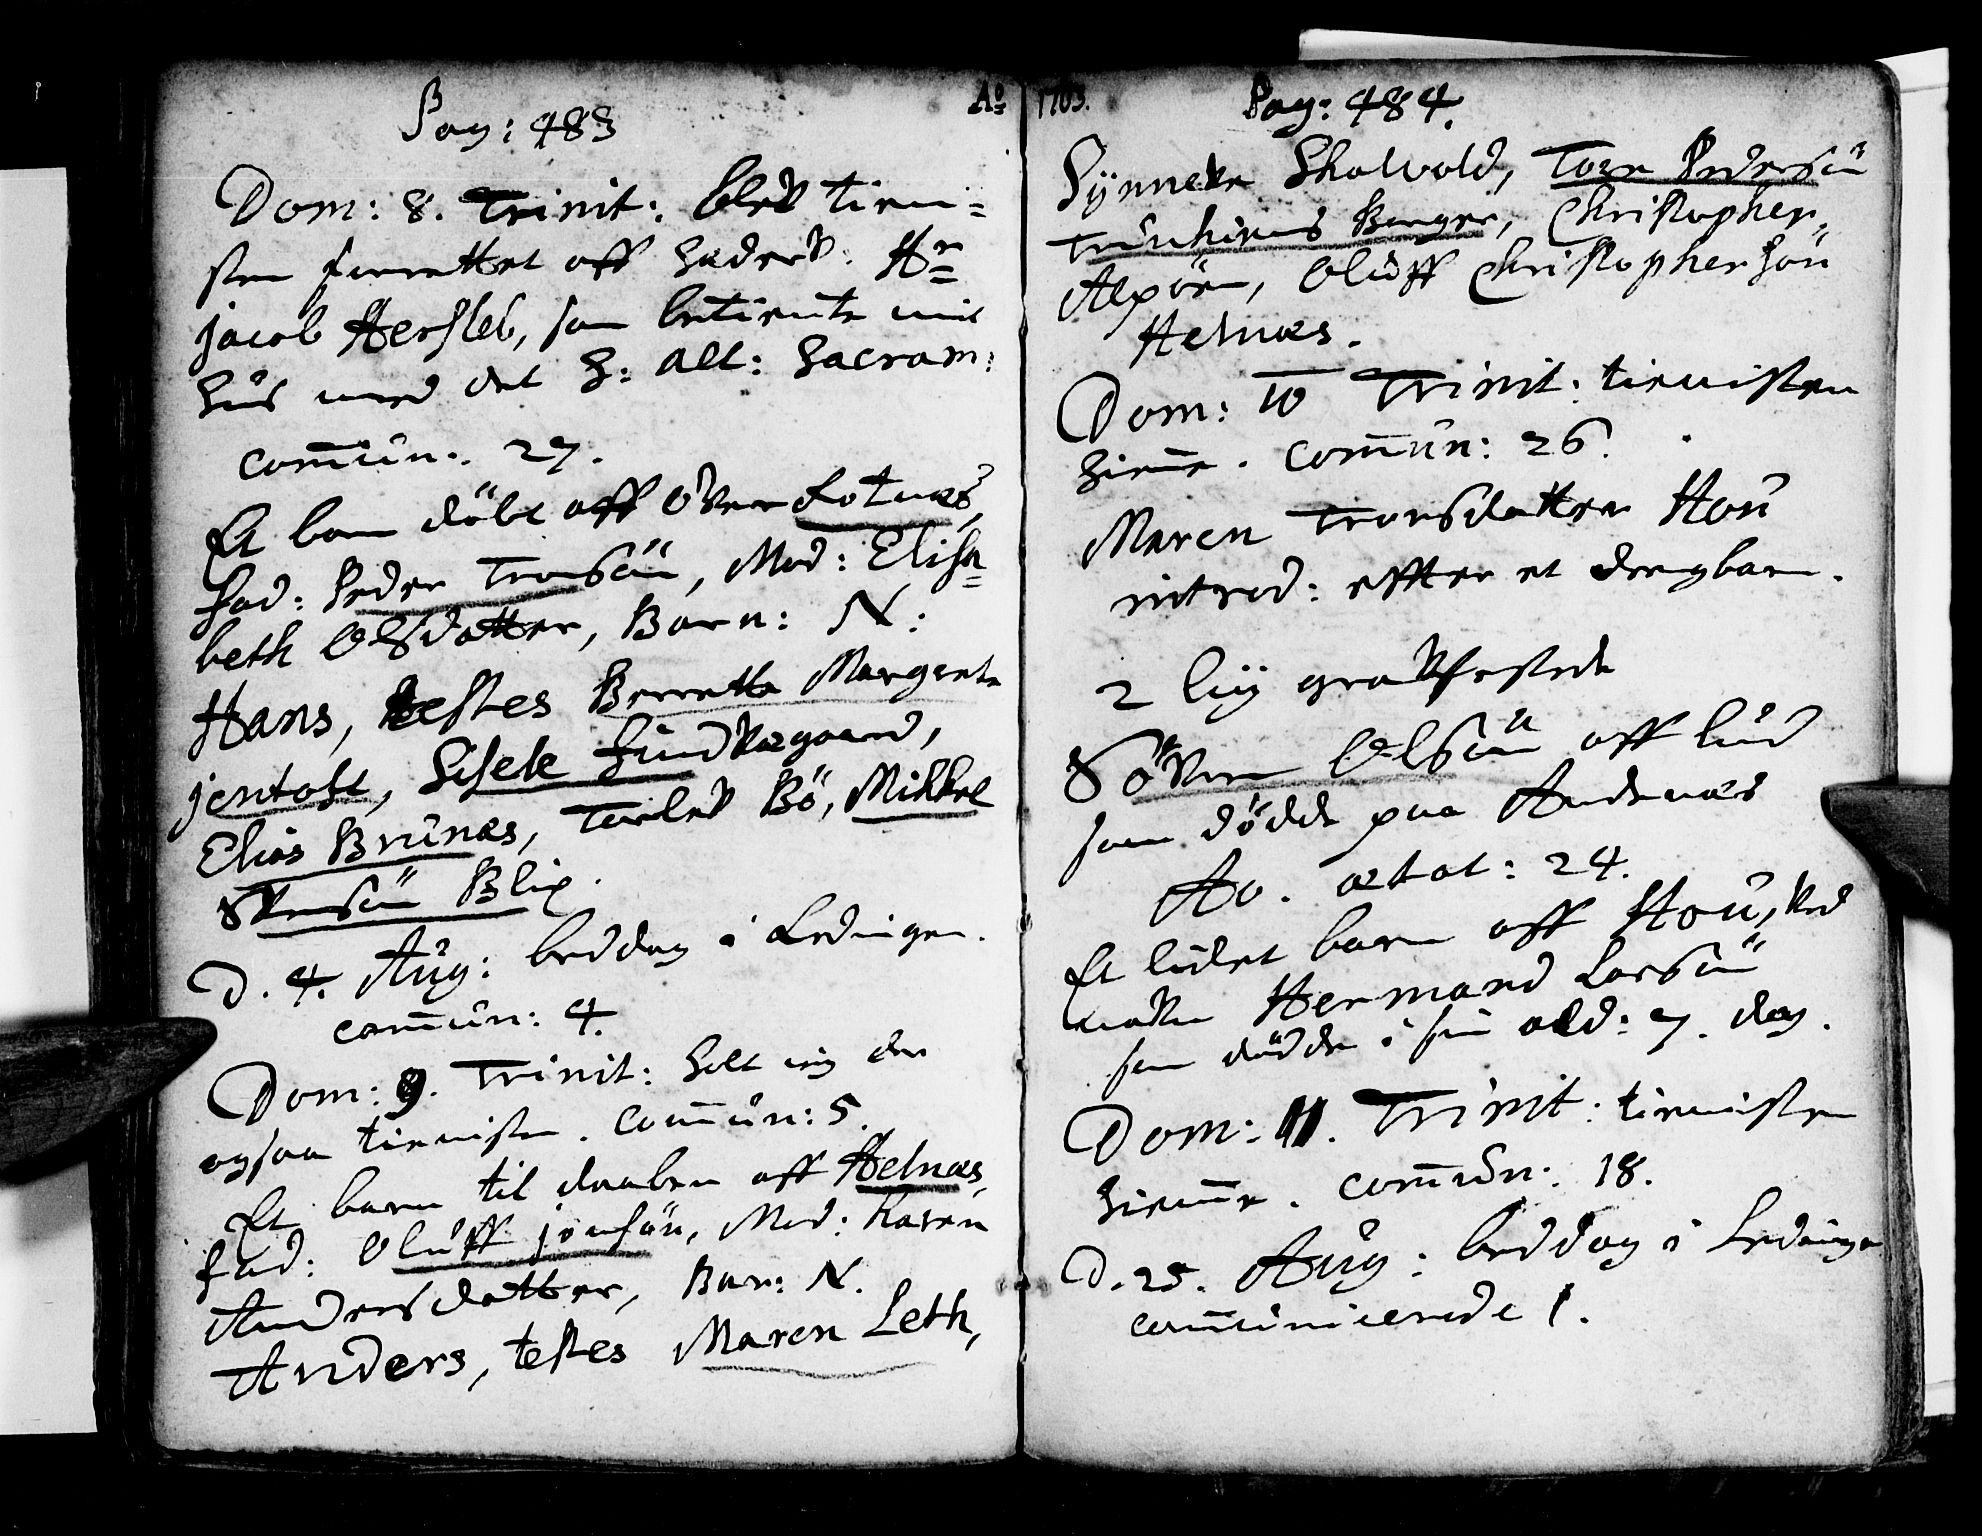 Pag: 483
Dom: 8. Trinit: blev tieni-
sten forrettet aff Hederv. Hr
Jacob Hersleb, som betiente mit
Hus med det H: Alt: Sacram:
com̄un: 27.
Et barn döbt aff Over Lotnæs,
fad: Peder Tronsön, Mod: Elisa-
beth Olsdatter, Barn: N:
Hans, testes Berrette Margrete
jentoft, Sisele Sundregaard,
Elias Brunæs, Torlev Bö, Mikkel
Svensön Blix.
D. 4. Aug: beddag i Lødingen.
com̄un: 4.
Dom: 9. Trinit: holt ieg der
ogsaa tienisten. Com̄un: 5.
Et barn til daaben aff Helnæs,
fad: Oluff jonsön, Mod: Karen
Andersdatter, Bar: N.
Anders, testes Maren Leth,
Ao 1703.
Pag: 484.
Synneve Skalvold, Tore Pedersön
Trunhiems Borger, Christopher
Alpöen, Oluff Christophersön
Helnæs.
Dom: 10 Trinit: tienisten
hiem̄e. Com̄un: 26.
Maren Tronsdatter Hou
introd: effter et drengbarn.
2 liig grafvfestede
Sövren Olsön aff lund
som dödde paa Andenæs
Ao. ætat: 24.
Et lidet barn aff Hou, ved
nafn Hermand Larsön
som dödde i sin ald: 7. dag.
Dom: 11. Trinit: tienisten
hiem̄e. Com̄un: 18.
D. 25. Aug: beddag i Lødinge
com̄unicerede 1.